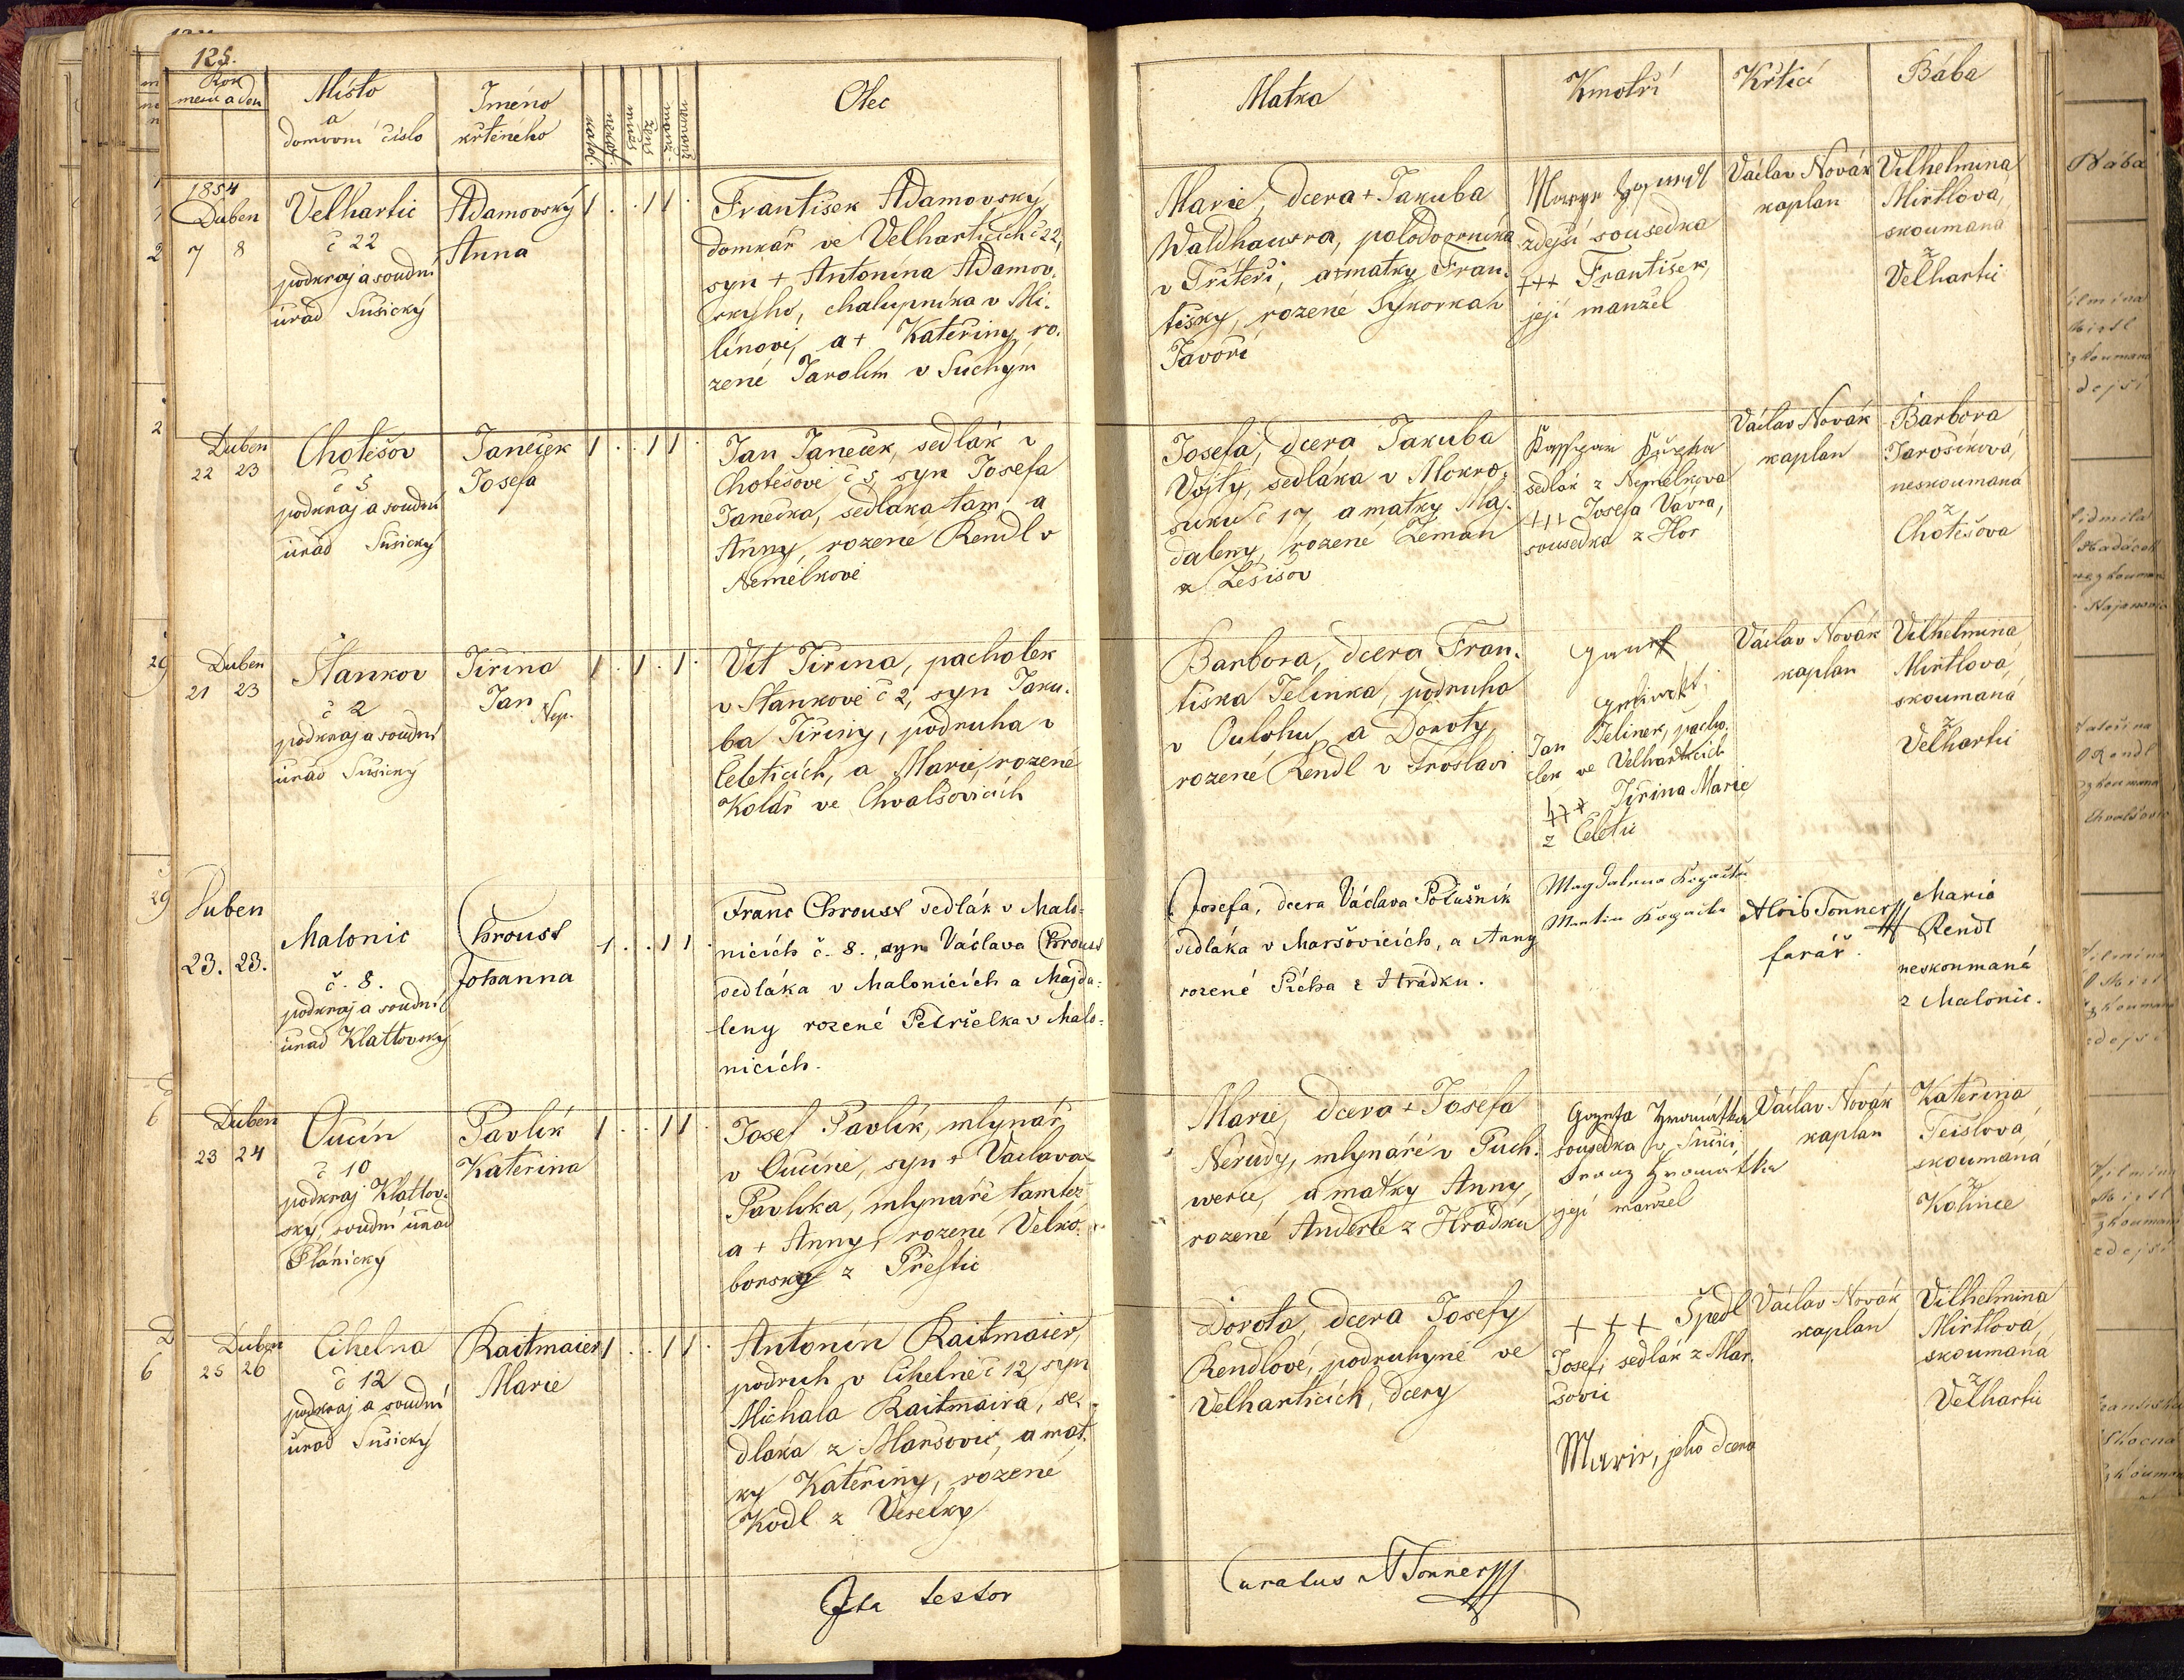 125.
Rok
měsíc a den
Místo
a
domovní číslo
Jméno
křtěného
katol.
nekat.
mužs
žens
manž.
nemanž
Otec
Matka
Kmotři
Křtící
Bába
1854
Duben
7 8
Velhartic
č 22
podkraj a soudní
úrad Sušický
Adamovský
Anna
1 . . 1 1
František Adamovský,
domkář ve Velharticích č 22,
syn + Antonína Adamov.
ského, chalupníka v Mi.
línově, a + Kateřiny ro.
zené Jarolím v Suchým
Marie, dcera + Jakuba
Waldhausra, polodvorníka
v Tříteři, a matky Fran.
tišky, rozené Sýkorkah
Javoří
zdejší sousedka
+++ František,
její manžel
Václav Novák
kaplan
Vilhelmina
Mirtlová,
skoumaná
z
Velhartic
Duben
22 23
Chotěšov
č 5
podkraj a soudní
úrad Sušický
Janeček
Josefa
1 . . 1 1 .
Jan Janeček, sedlák v
Chotěšově č 5, syn Josefa
Janečka, sedláka tam, a
Anny, rozené Rendl v
Nemělkově
Josefa, dcera Jakuba
Vojty, sedláka v Mokro.
suku č 17, a matky Maj.
daleny, rozené Zeman
z Lešišov
sedlák z Nemělkova
+++ Josefa Vávra,
sousedka z Hor
Václav Novák
kaplan
Barbora
Jarošíková,
neskoumaná
z
Chotěšova
Duben
21 23
Stankov
č 2
podkraj a soudní
úrad Sušický
Jiřina
Jan
Nep.
1 . 1 . 1 .
Vít Jiřina, pacholek
v Stankově č 2, syn Jaku.
ba Jiřiny, podruha v
Čeleticích, a Marie, rozené
Kolář ve Chvalšovicích
Barbora, dcera Fran.
tiška Jelínka, podruha
v Čulohu, a Doroty,
rozené Rendl v Froslavi
Jan Jelinek, pacho.
lek ve Velharticích
+++ Jiřina Marie
z Čeletic
Václav Novák
kaplan
Vilhelmina
Mirtlová,
skoumaná
z
Velhartic
Duben
23. 23.
Malonic
č. 8.
podkraj a soudní
úrad Klattovský
Chroust
Johanna
1 . . 1 1 .
Franc Chroust sedlák v Malo=
nicích č. 8., syn Václava Chroust
sedláka v Malonicích a Majda=
leny rozené Petrželka v Malo=
nicích.
Josefa, dcera Václava Polušnik
sedláka v Maršovicích, a Anny
rozené Pícha z Hrádku.
Magdalena
Martin
Alois Tonner
farář.
Maria
Rendl
neskoumaná
z Malonic.
Duben
23 24
Učín
č 10
podkraj Klattov.
ský, soudní úrad
Plánický
Pavlík
Kateřina
1 . . 1 1 .
Josef Pavlík, mlynář
v Učíně, syn + Václava
Pavlíka, mlynáře tamtéz
a + Anny, rozené Velko.
borský z Přeštic
Marie, dcera + Josefa
Nerudy, mlynáře v Puch.
werce, a matky Anny,
rozené Anderle z Hrádku
sousedka v Sušici
její manžel
Václav Novák
kaplan
Kateřina
Teislová
skoumaná
z
Kolince
Duben
25 26
Cihelna
č 12
podkraj a soudní
úrad Sušický
Raitmaier
Marie
1 . . 1 1 .
Antonín Raitmaier,
podruh v Cihelně č 12, syn
Michala Raitmaira, se.
dláka z Maršovic, a mat.
ky Kateřiny, rozené
Kodl z Veselky
Dorota, dcera Josefy
Rendlové, podruhyně ve
Velharticích, dcery
+ + + Špedl
Josef, sedlák z Mar.
šovic
Marie, jeho dcera
Václav Novák
kaplan
Vilhelmina
Mirtlová
skoumaná
z
Velhartic
Ita testor
Curatus A Tonner